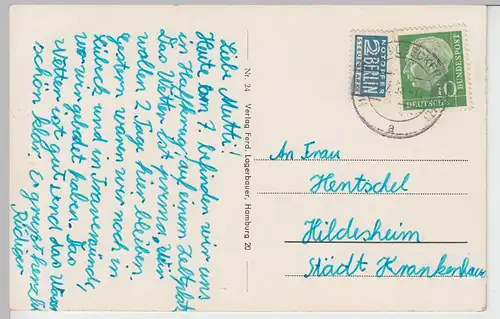 Liebe Mutti!
Heute am 7. befinden wir uns
in Haffkrug auf einem Zeltplatz
Das Wetter ist prima. Wir
wollen 2 Tage hier bleiben.
Gestern waren wir noch in
Lübeck und in Travemünde,
wo wir gebadet haben. Das
Wetter ist gut und das Wasser
schön klar. Es grüsst herzlich
Rüdiger
Nr. 24 Verlag Ferd. Lagerbauer, Hamburg 20
NOTOPFER
2 BERLIN
STEUERMARKE
10
DEUTSCHE
BUNDESPOST
a
An Frau
Hentschel
Hildesheim
Städt Krankenhaus